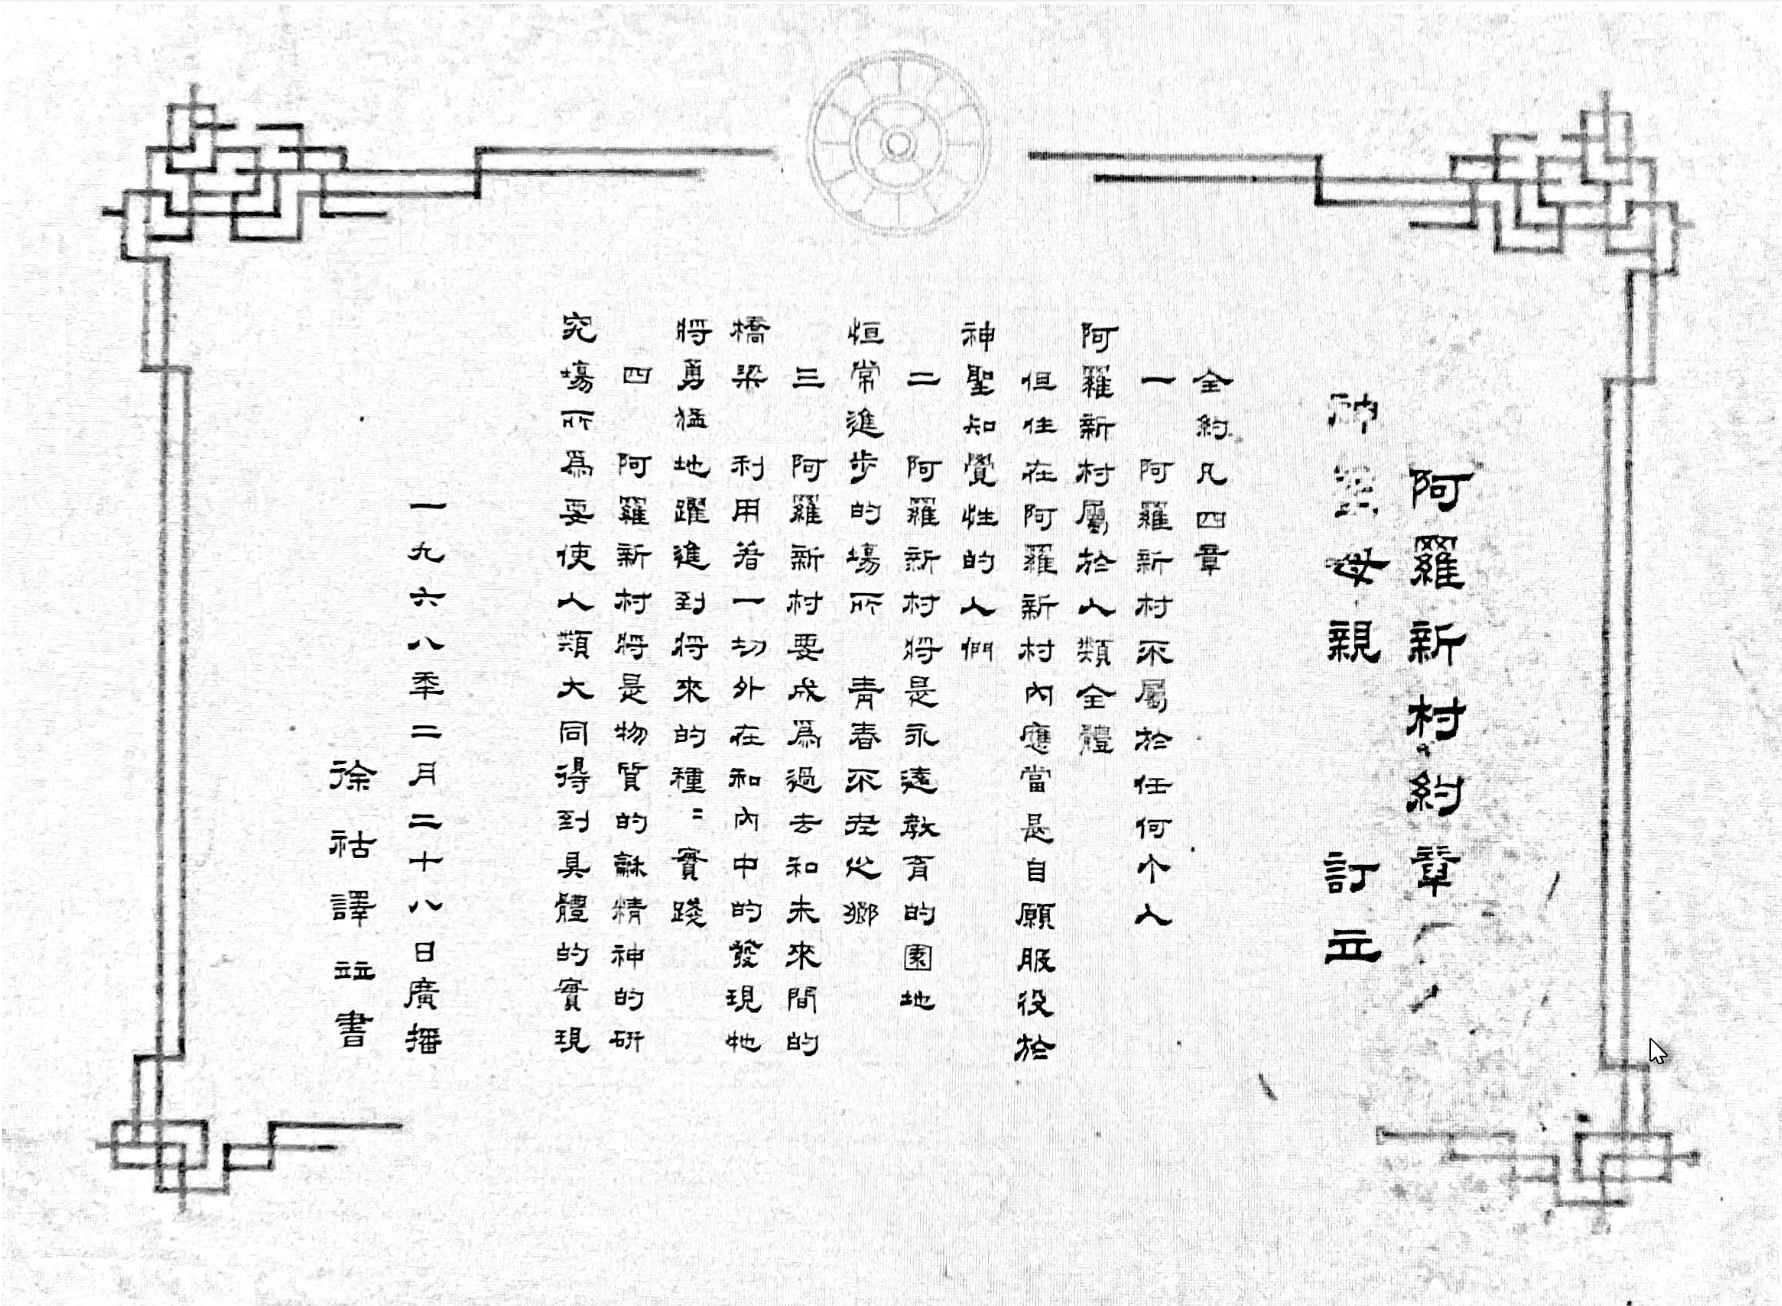 阿羅新村約章
神聖母親 訂立
全約凡四章
一 阿羅新村不屬於任何个人
阿羅新村屬於人類全體
但住在阿羅新村內應當是自願服役於
神聖知覺性的人們
二 阿羅新村將是永遠教育的園地
恒常進步的場所 青春不老之鄉
三 阿羅新村要成爲過去和未來間的
橋梁 利用着一切外在和內中的發現牠
將勇猛地躍進到將來的種〻實踐
四 阿羅新村將是物質的龢精神的研
究場所爲要使人類大同得到具體的實現
一九六八年二月二十八日廣播
徐祜譯並書